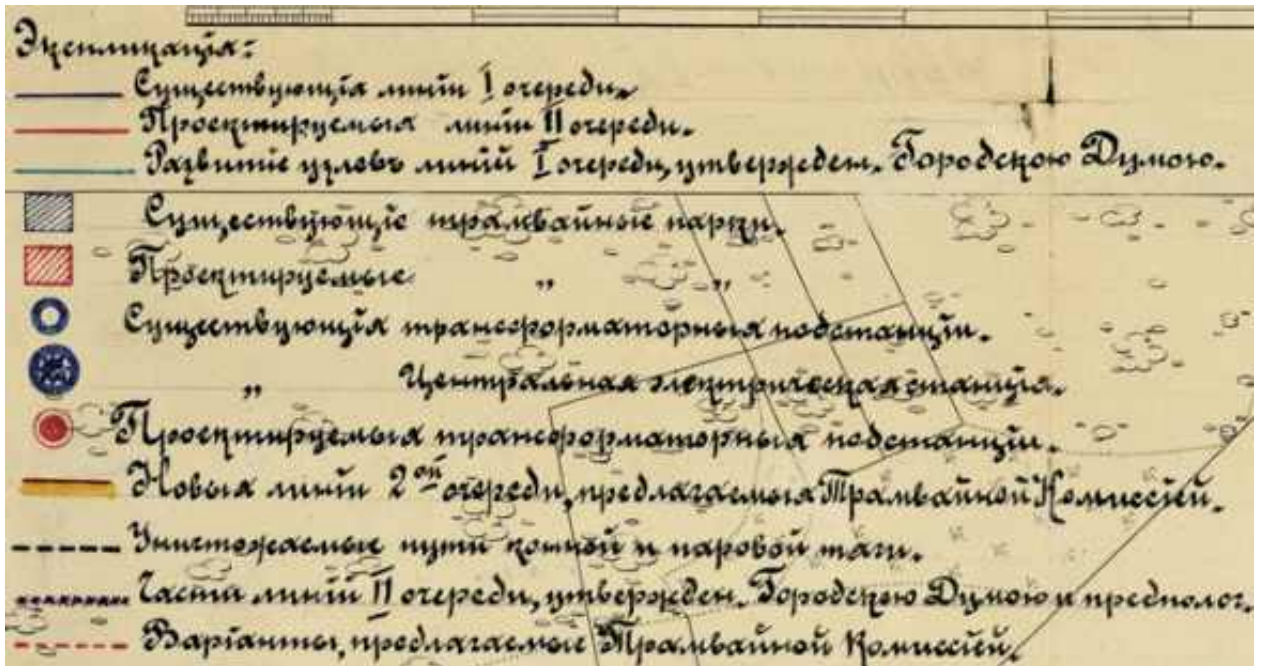 Экспликація:
Существующія линіи I очереди.
Проектируемыя линіи II очереди.
Развитіе узловъ линій I очереди, утвержден. Городскою Думою.
Существующіе трамвайные парки.
Проектируемые „ „
Существующія трансформаторныя подстанціи.
„ Центральная электрическая станція.
Проектируемыя трансформаторныя подстанціи.
Новыя линіи 2ой очереди, предлагаемыя Трамвайной Комиссіей.
Уничтожаемые пути конной и паровой тяги.
Части линій II очереди, утвержден. Городскою Думою и предполог.
Варіанты, предлагаемые Трамвайной Комиссіей.